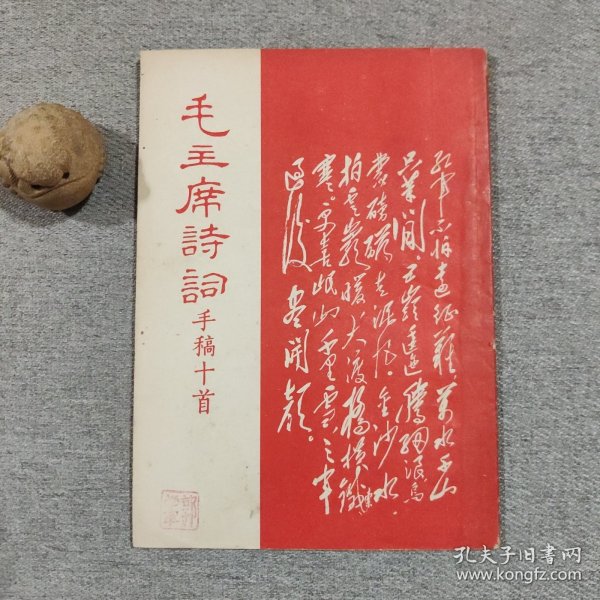 毛主席詩詞
手稿十首
紅軍不怕遠征難，萬水千山
只等閒。五嶺逶迤騰細浪，烏
蒙磅礴走泥丸。金沙水
拍雲崖暖，大渡橋橫鐵索
寒。更喜岷山千里雪，三軍
過後盡開顏。
孔夫子旧书网
www.kongfz.com